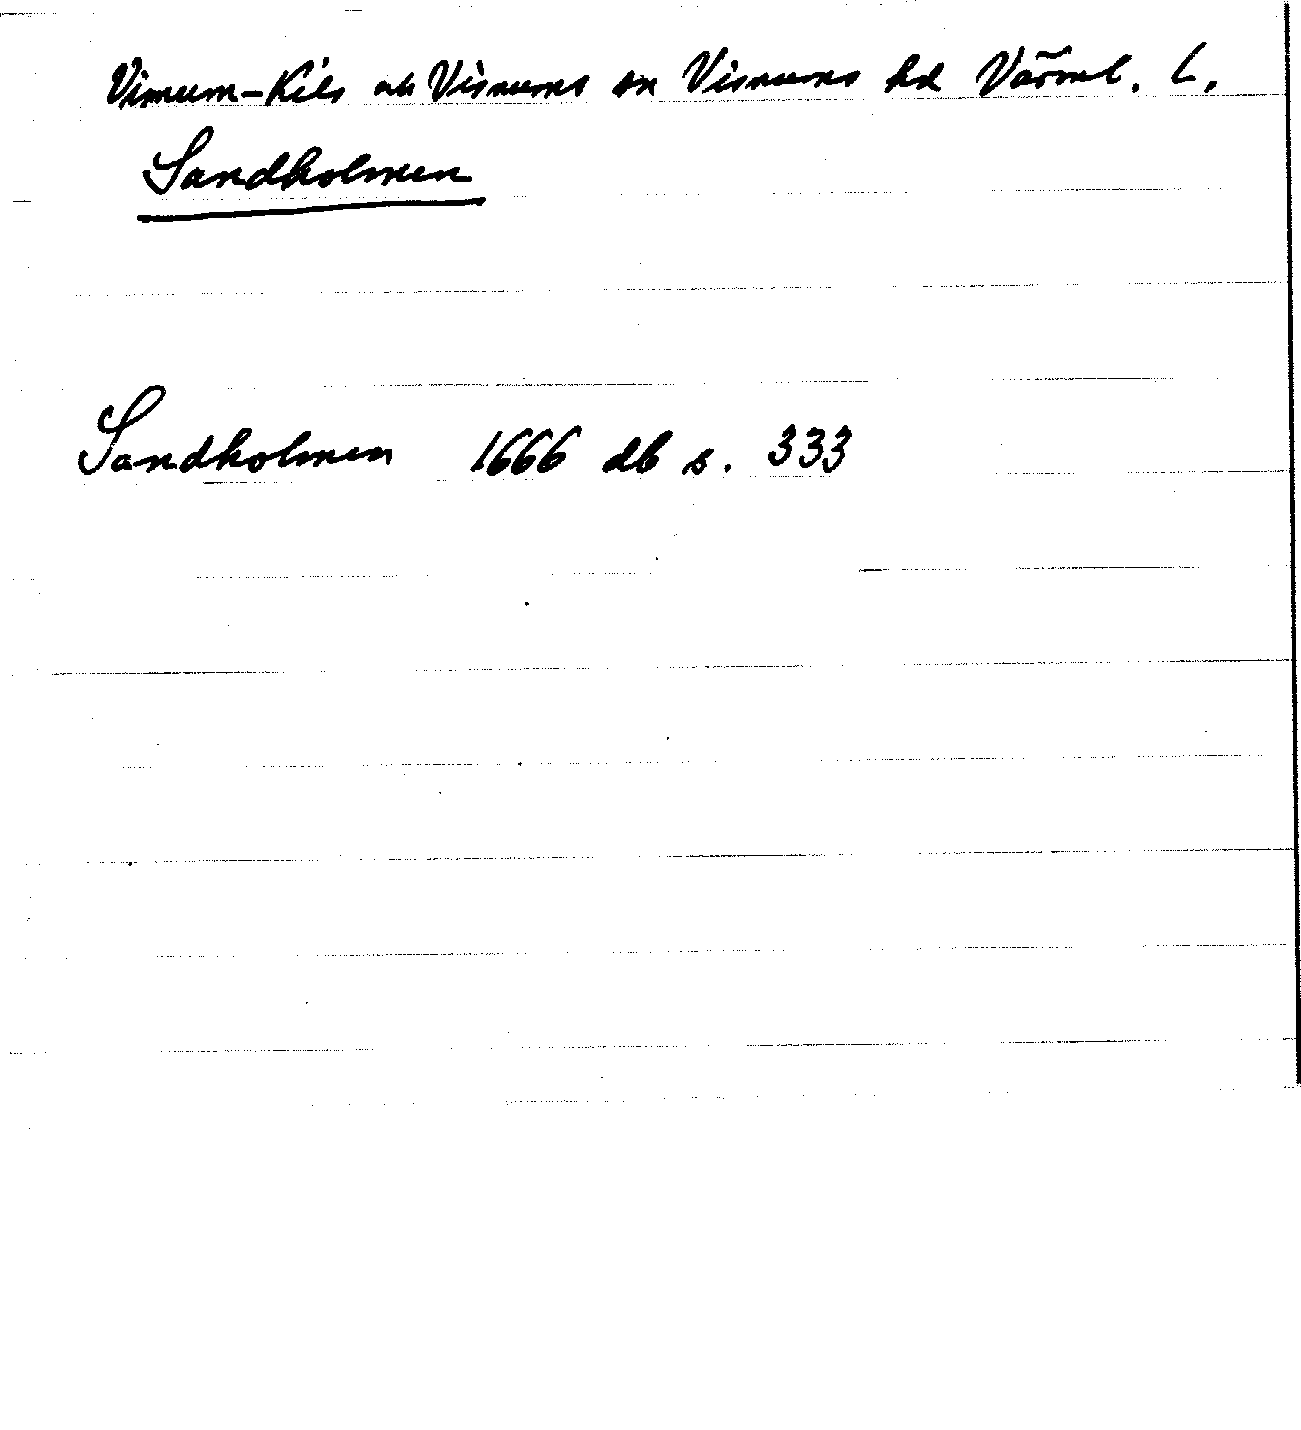 Visnum-Kils och Visnums sn Visnums hd Värml. L.
Sandholmen
Sandholmen 1666 db s. 333